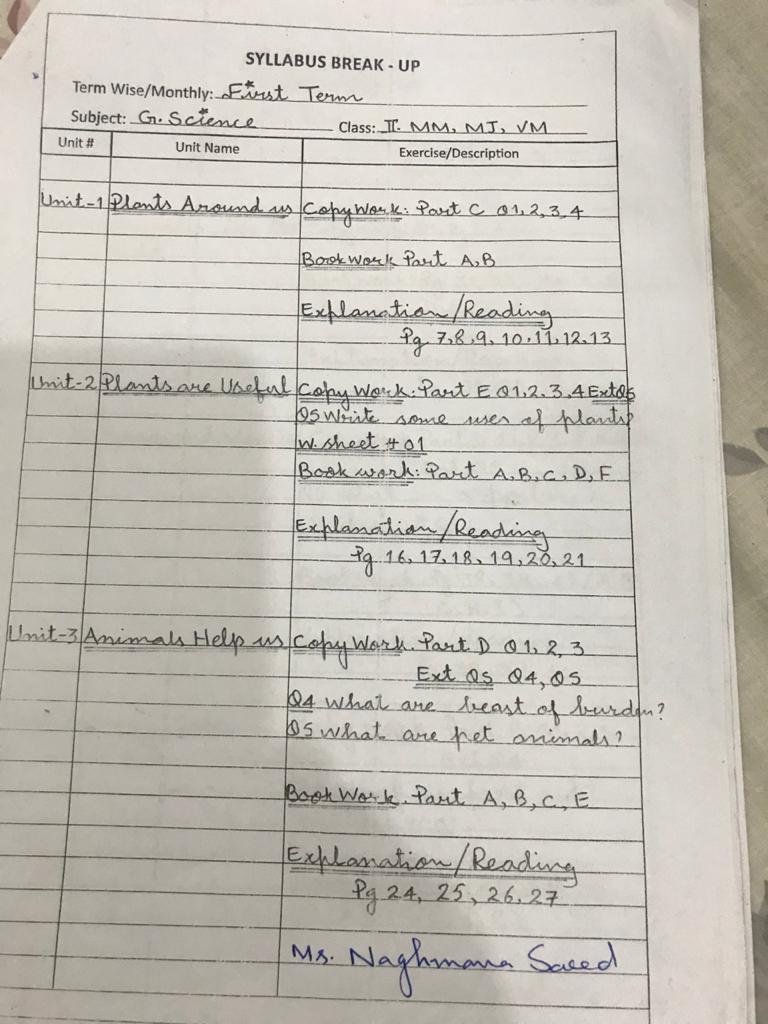 SYLLABUS BREAK - UP
Term Wise/Monthly: First Term
Subject: G. Science Class: II. MM, MJ, VM
Unit # Unit Name Exercise/Description
Unit-1 Plants Around us Copy Work: Part C Q1, 2, 3, 4
Book work Part A, B
Explanation/Reading
Pg 7, 8, 9, 10, 11, 12, 13
Unit-2 Plants are Useful Copy Work: Part E Q1, 2, 3, 4 Ext Qs
Q5 Write some uses of plants?
W. sheet # 01
Book work: Part A, B, C, D, F
Explanation/Reading
Pg 16, 17, 18, 19, 20, 21
Unit-3 Animals Help us Copy Work. Part D Q1, 2, 3
Ext Qs Q4, Q5
Q4 What are beast of burden?
Q5 What are pet animals?
Book Work. Part A, B, C, E
Explanation/Reading
Pg 24, 25, 26, 27
Ms. Naghmana Saeed